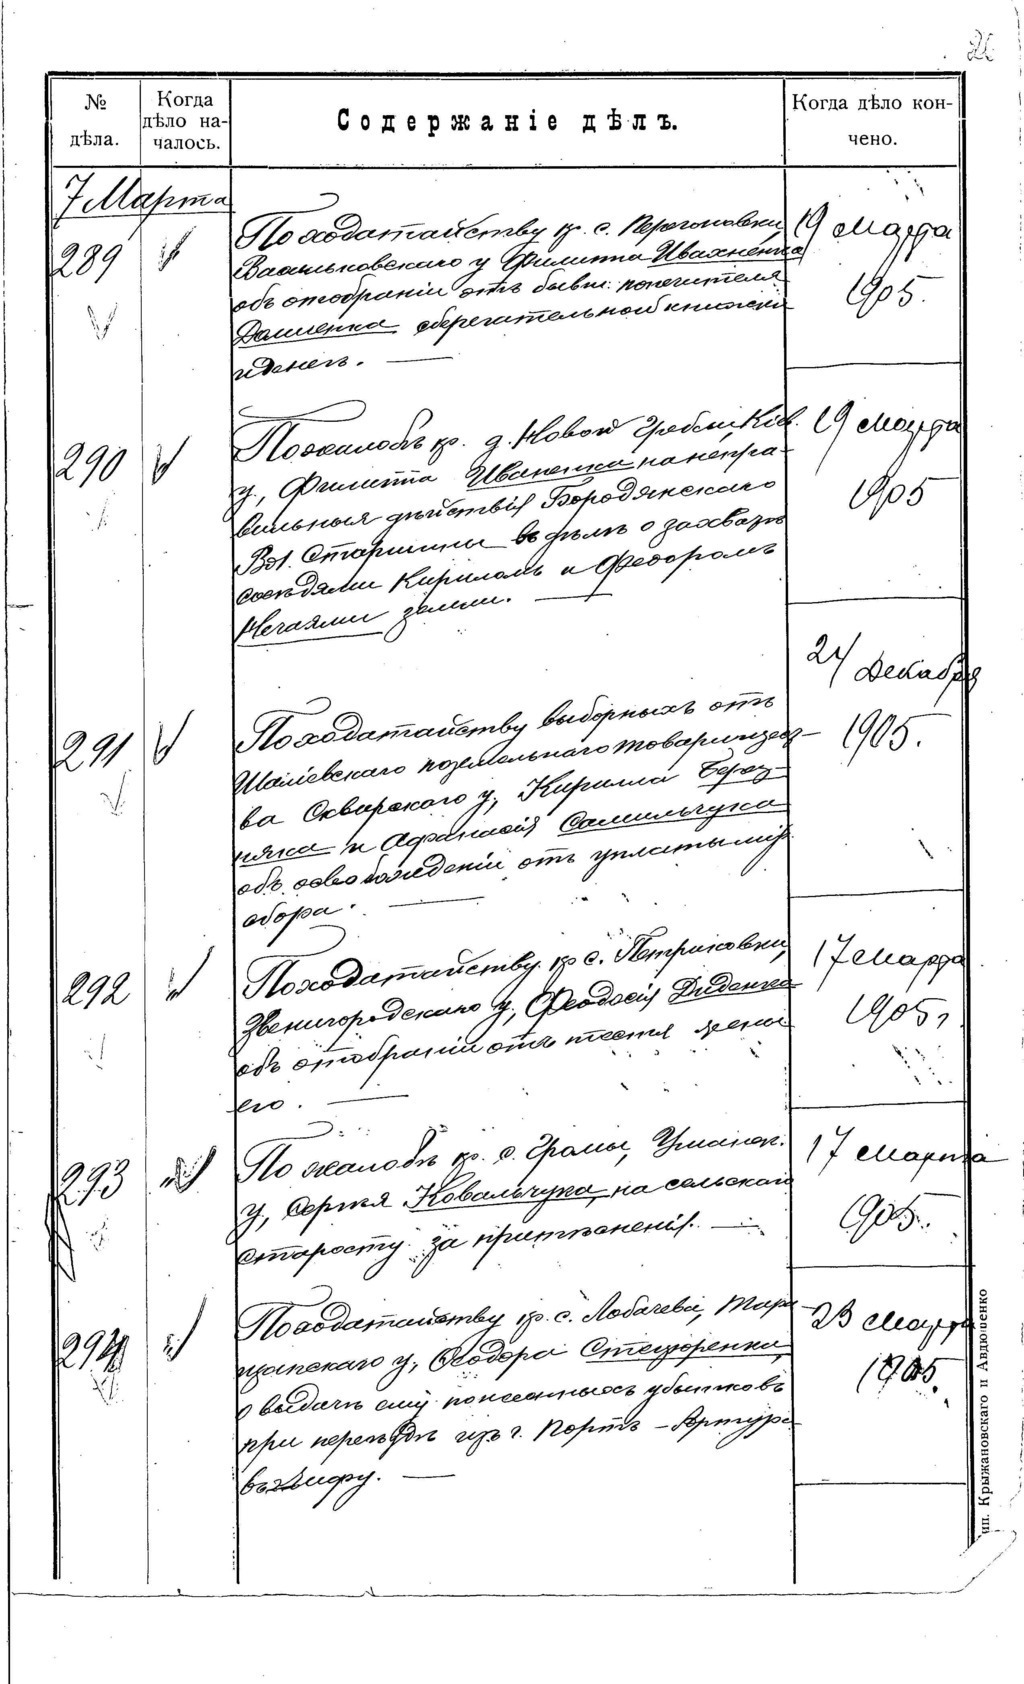 № дѣла.
Когда дѣло началось.
Содержаніе дѣлъ.
Когда дѣло кончено.
7 Марта
289
По ходатайству кр. с. Перегоновки,
Васильковскаго у Филиппа Ивахненка
объ отобраніи отъ бывш. попечителя
сберегательной книжки
и денегъ. —
19 Марта
1905.
290
По жалобѣ кр. д. Новой Гребли, Кіев.
у., Филиппа Иваненка на непра-
вильныя дѣйствія Бородянскаго
Вол. Старшины въ дѣлѣ о захватѣ
сосѣдями Кириломъ и Федоромъ
Нечаями земли. —
19 Марта
1905
291
По ходатайству выборныхъ отъ
поземельнаго товарищест-
ва Сквирскаго у., Кирилла Берез-
няка и Афанасія Самильчука
объ освобожденіи отъ уплаты мір.
сбора. —
24 Декабря
1905.
292
По ходатайству кр. с. Петриковки,
Звенигородскаго у., Феодосія Диденка
объ отобраніи отъ тестя жены
его. —
17 Марта
1905,
293
По жалобѣ кр. с. Громы, Уманск.
у., Сергѣя Ковальчука, на сельскаго
старосту за притѣсненія. —
17 Марта
1905.
294
По ходатайству кр. с. Лобачева, Тара-
щанскаго у., Феодора
о выдачѣ ему понесенныхъ убытковъ
при переѣздѣ изъ г. Портъ-Артура
въ Чифу. —
23 Марта
1905.
Крыжановскаго и Авдюшенко